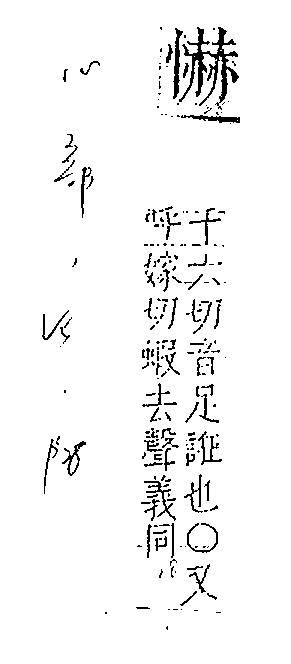 㦦
千六切音足誑也○又
呼嫁切蝦去聲義同
心部